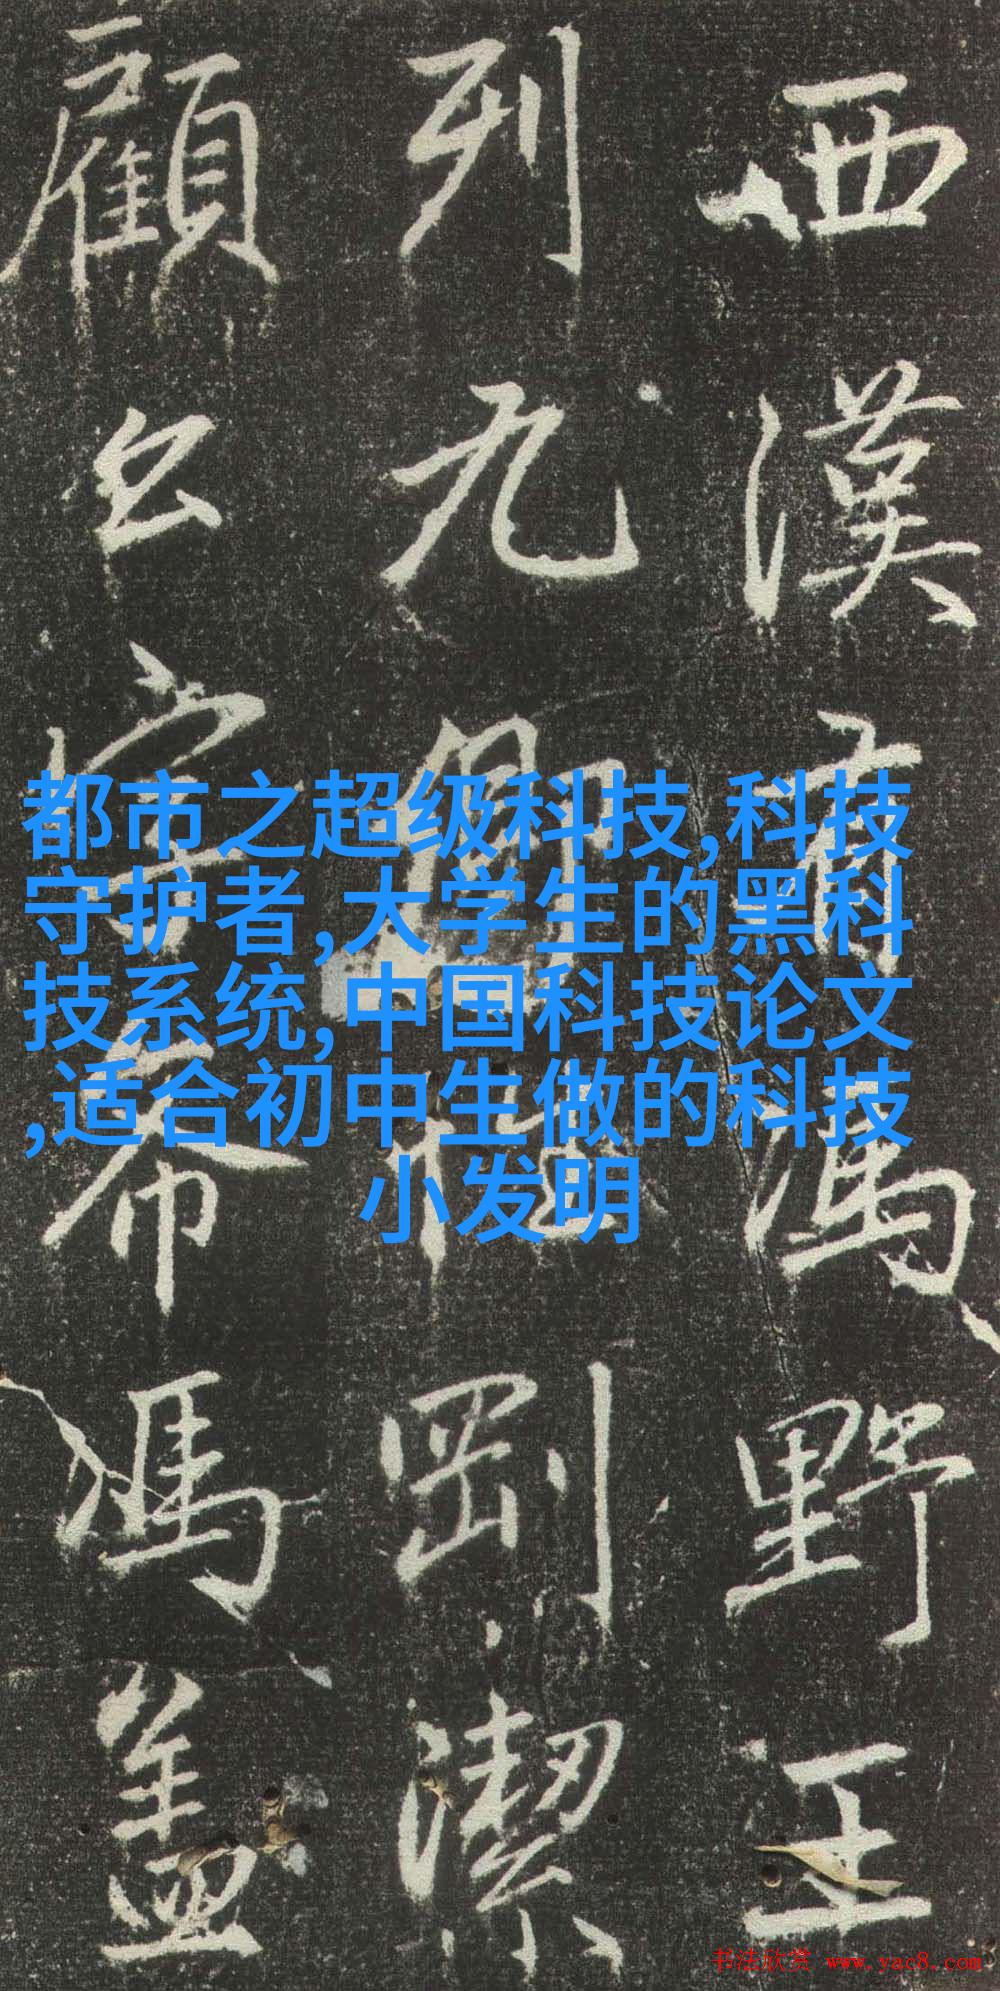 西漢有馮野王
列九卿剛潔
顧公字希馮蓋
都市之超级科技,科技
守护者,大学生的黑科
技系统,中国科技论文
,适合初中生做的科技
小发明
书法欣赏 www.yac8.com